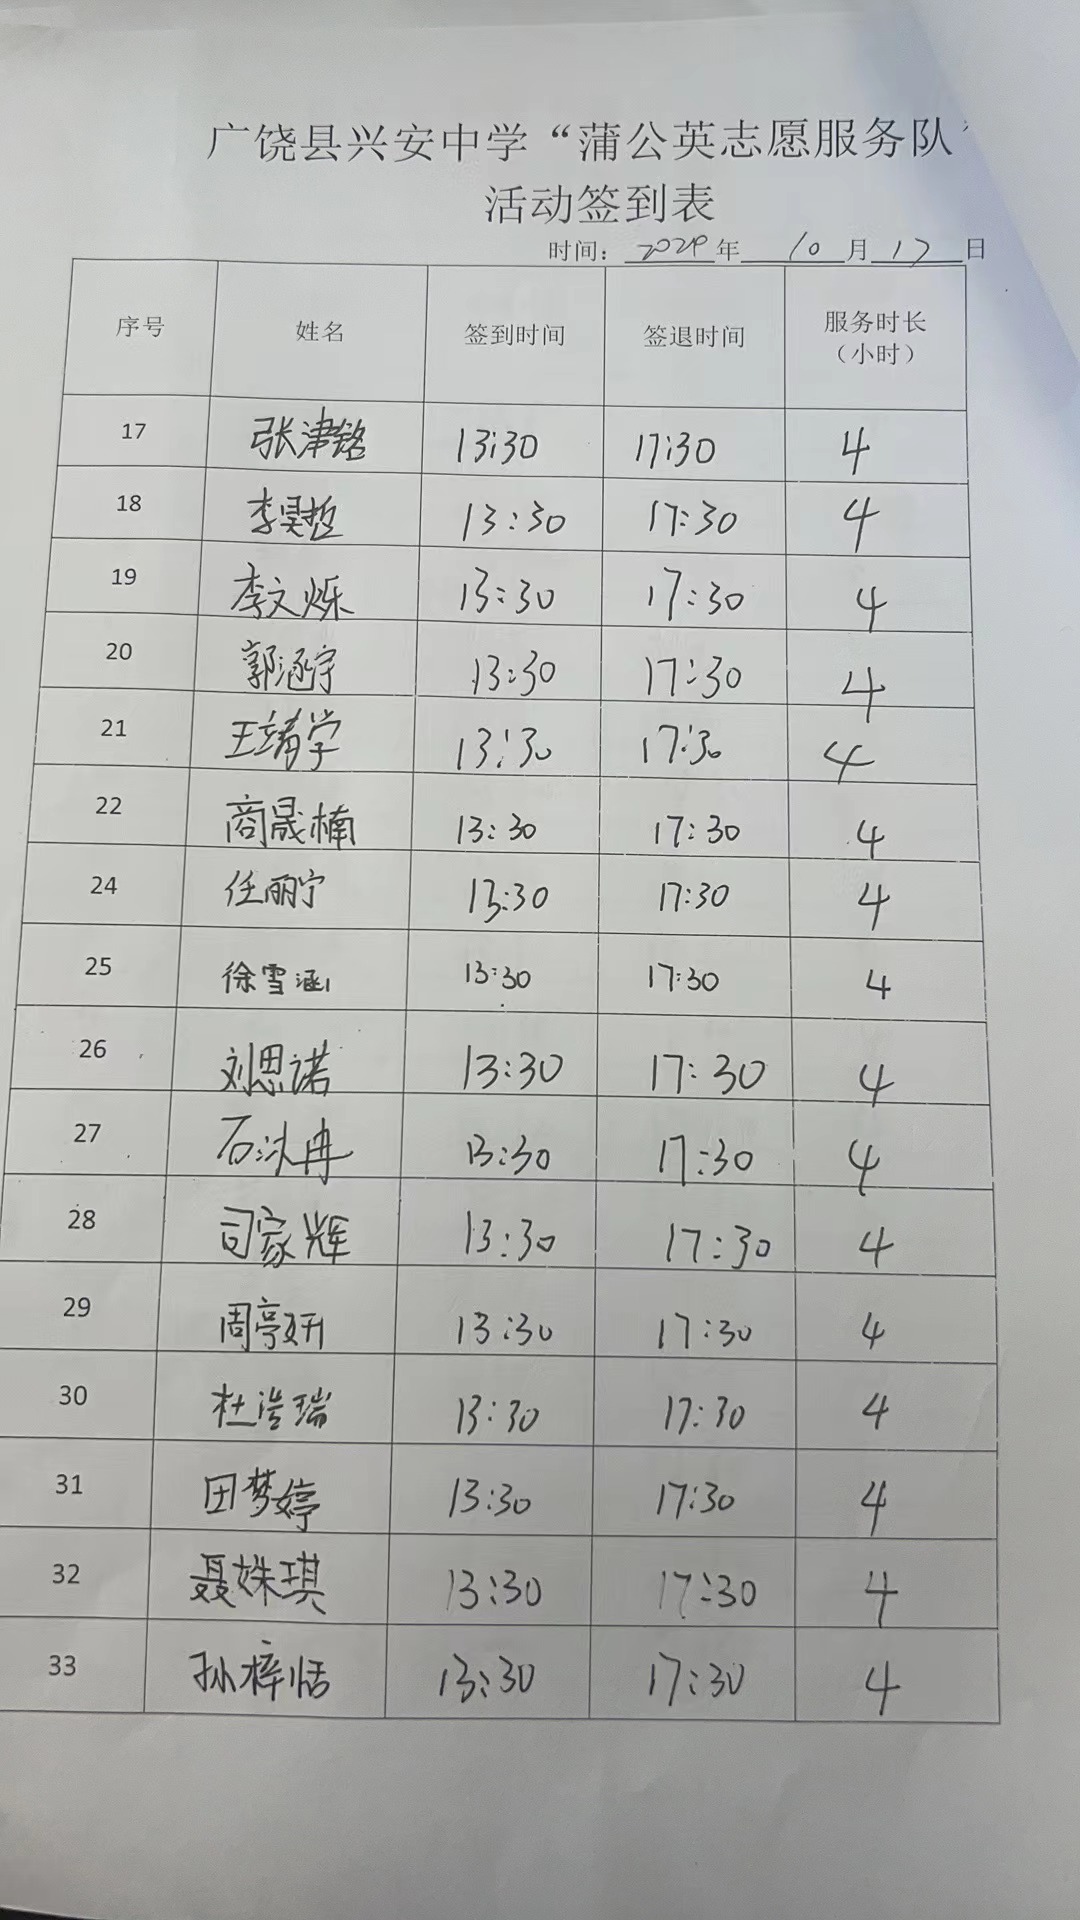 广饶县兴安中学“蒲公英志愿服务队”
活动签到表
时间：2024年 10月17日
序号 姓名 签到时间 签退时间 服务时长（小时）
17 张津铭 13:30 17:30 4
18 李昊哲 13:30 17:30 4
19 李文烁 13:30 17:30 4
20 郭涵宇 13:30 17:30 4
21 王靖学 13:30 17:30 4
22 商晟楠 13:30 17:30 4
24 任丽宁 13:30 17:30 4
25 徐雪涵 13:30 17:30 4
26 刘恩诺 13:30 17:30 4
27 石沐冉 13:30 17:30 4
28 司家辉 13:30 17:30 4
29 周亭妍 13:30 17:30 4
30 杜浩瑞 13:30 17:30 4
31 田梦婷 13:30 17:30 4
32 聂姝琪 13:30 17:30 4
33 孙梓恬 13:30 17:30 4